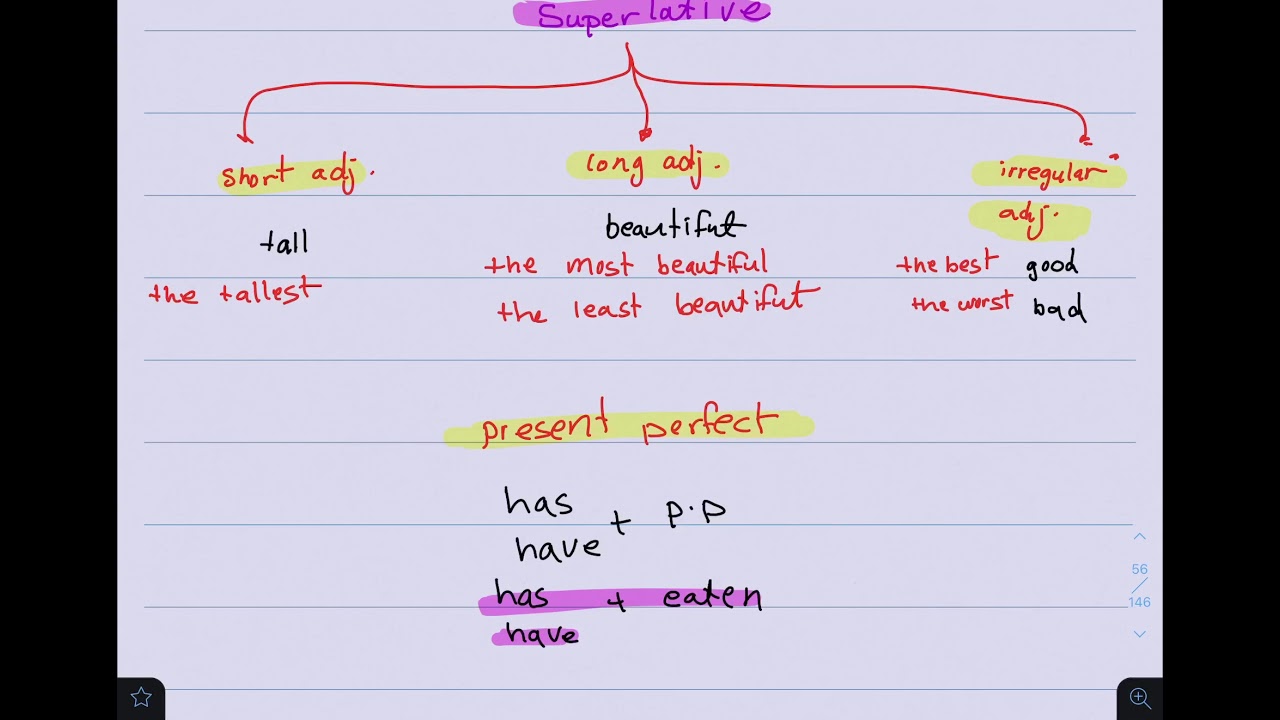 Superlative
short adj.
long adj.
irregular
adj.
tall
the tallest
beautiful
the most beautiful
the least beautiful
the best good
the worst bad
present perfect
has
have + p.p
has + eaten
have
56
146